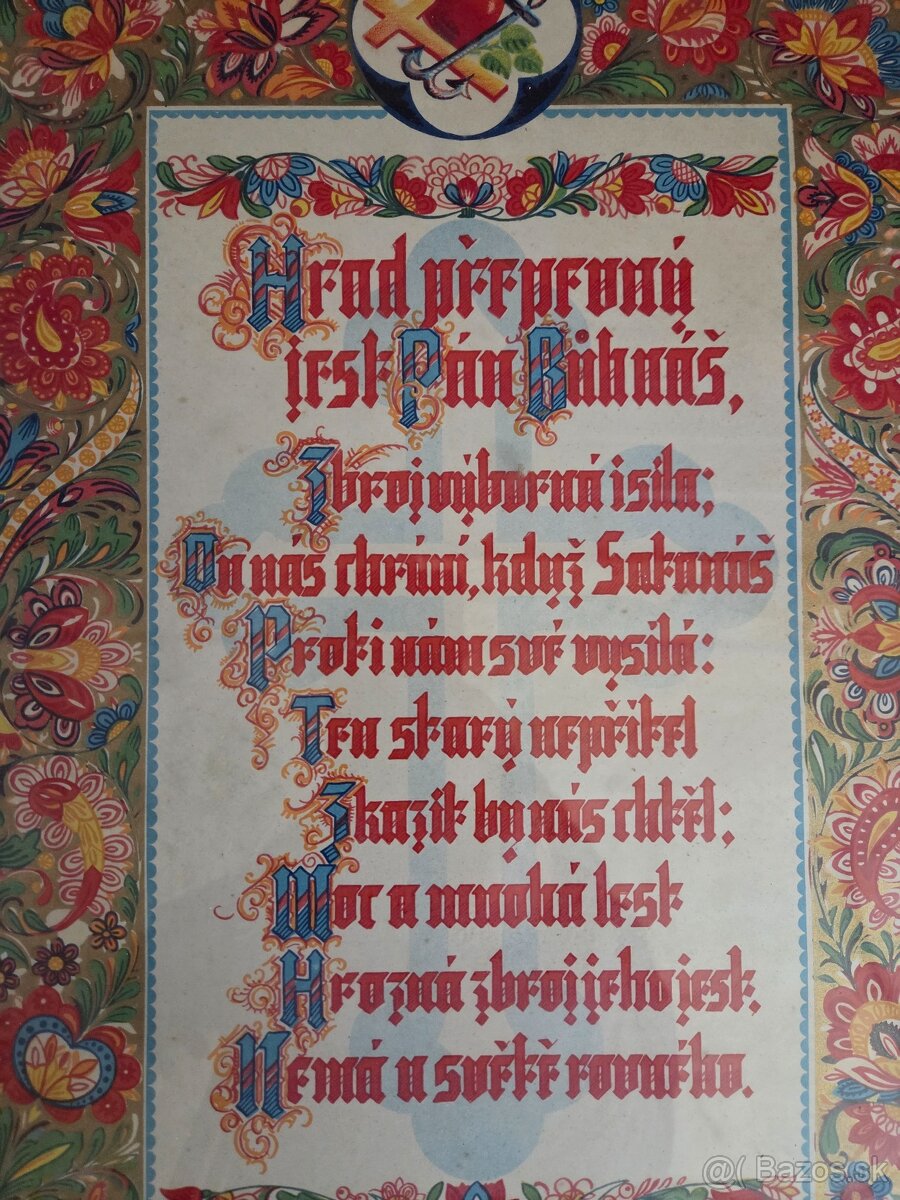 Hrad přepevný
jest Pán Bůh náš,
Zbroj výborná i síla;
On nás chrání, když Satanáš
Proti nám své vysílá:
Ten starý nepřítel
Zkazit by nás chtěl;
Moc a mnohá lest
Hrozná zbroj jeho jest,
Nemá v světě rovného.
@( Bazos.sk